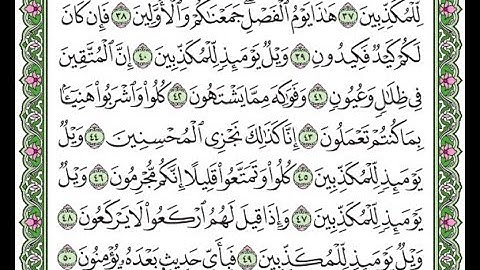 لِّلْمُكَذِّبِينَ ٣٧ هَٰذَا يَوْمُ الْفَصْلِ ۖ جَمَعْنَاكُمْ وَالْأَوَّلِينَ ٣٨ فَإِن كَانَ
لَكُمْ كَيْدٌ فَكِيدُونِ ٣٩ وَيْلٌ يَوْمَئِذٍ لِّلْمُكَذِّبِينَ ٤٠ إِنَّ الْمُتَّقِينَ
فِي ظِلَالٍ وَعُيُونٍ ٤١ وَفَوَاكِهَ مِمَّا يَشْتَهُونَ ٤٢ كُلُوا وَاشْرَبُوا هَنِيئًا
بِمَا كُنتُمْ تَعْمَلُونَ ٤٣ إِنَّا كَذَٰلِكَ نَجْزِي الْمُحْسِنِينَ ٤٤ وَيْلٌ
يَوْمَئِذٍ لِّلْمُكَذِّبِينَ ٤٥ كُلُوا وَتَمَتَّعُوا قَلِيلًا إِنَّكُم مُّجْرِمُونَ ٤٦ وَيْلٌ
يَوْمَئِذٍ لِّلْمُكَذِّبِينَ ٤٧ وَإِذَا قِيلَ لَهُمُ ارْكَعُوا لَا يَرْكَعُونَ ٤٨
وَيْلٌ يَوْمَئِذٍ لِّلْمُكَذِّبِينَ ٤٩ فَبِأَيِّ حَدِيثٍ بَعْدَهُ يُؤْمِنُونَ ٥٠